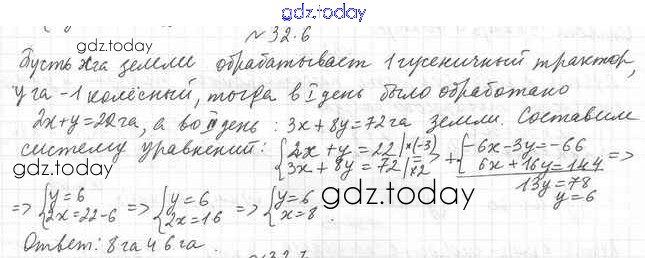 gdz.today
№32.6
gdz.today
Пусть x га земли обрабатывает 1 гусеничный трактор,
y га - 1 колёсный, тогда в I день было обработано
2x+y=22 га, а во II день: 3x+8y=72 га земли. Составим
систему уравнений: {2x+y=22 |×(-3) {-6x-3y=-66
3x+8y=72 |×2 + 6x+16y=144 =>
13y=78
y=6
=> {y=6 => {y=6 => {y=6
2x=22-6 2x=16 x=8.
gdz.today
gdz.today
Ответ: 8 га и 6 га.